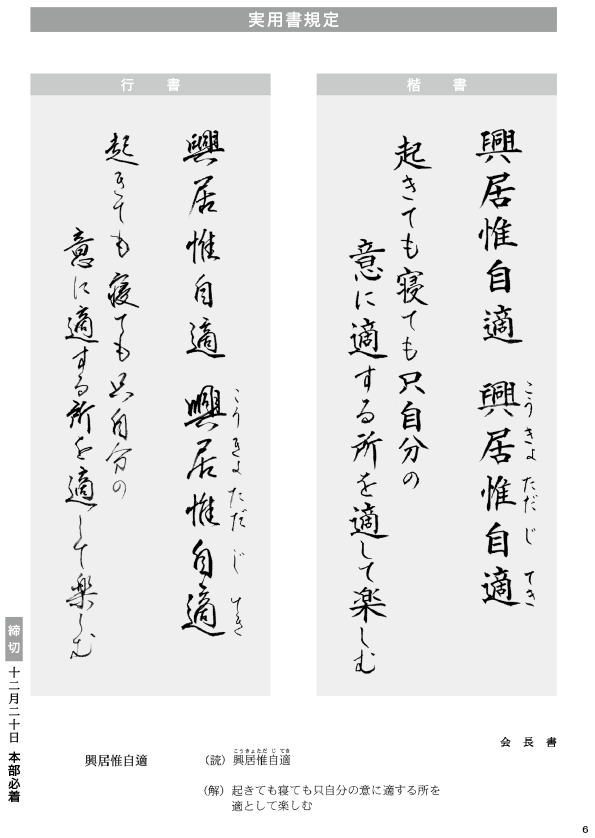 実用書規定
楷書
興居惟自適 興居惟自適
こうきょ ただ じ てき
起きても寝ても只自分の
意に適する所を適して楽しむ
会長書
行書
興居惟自適 興居惟自適
こうきょ ただ じ てき
起きても寝ても只自分の
意に適する所を適して楽しむ
締切 十二月二十日 本部必着
興居惟自適
こうきょただじてき
(読) 興居惟自適
(解) 起きても寝ても只自分の意に適する所を
適として楽しむ
6